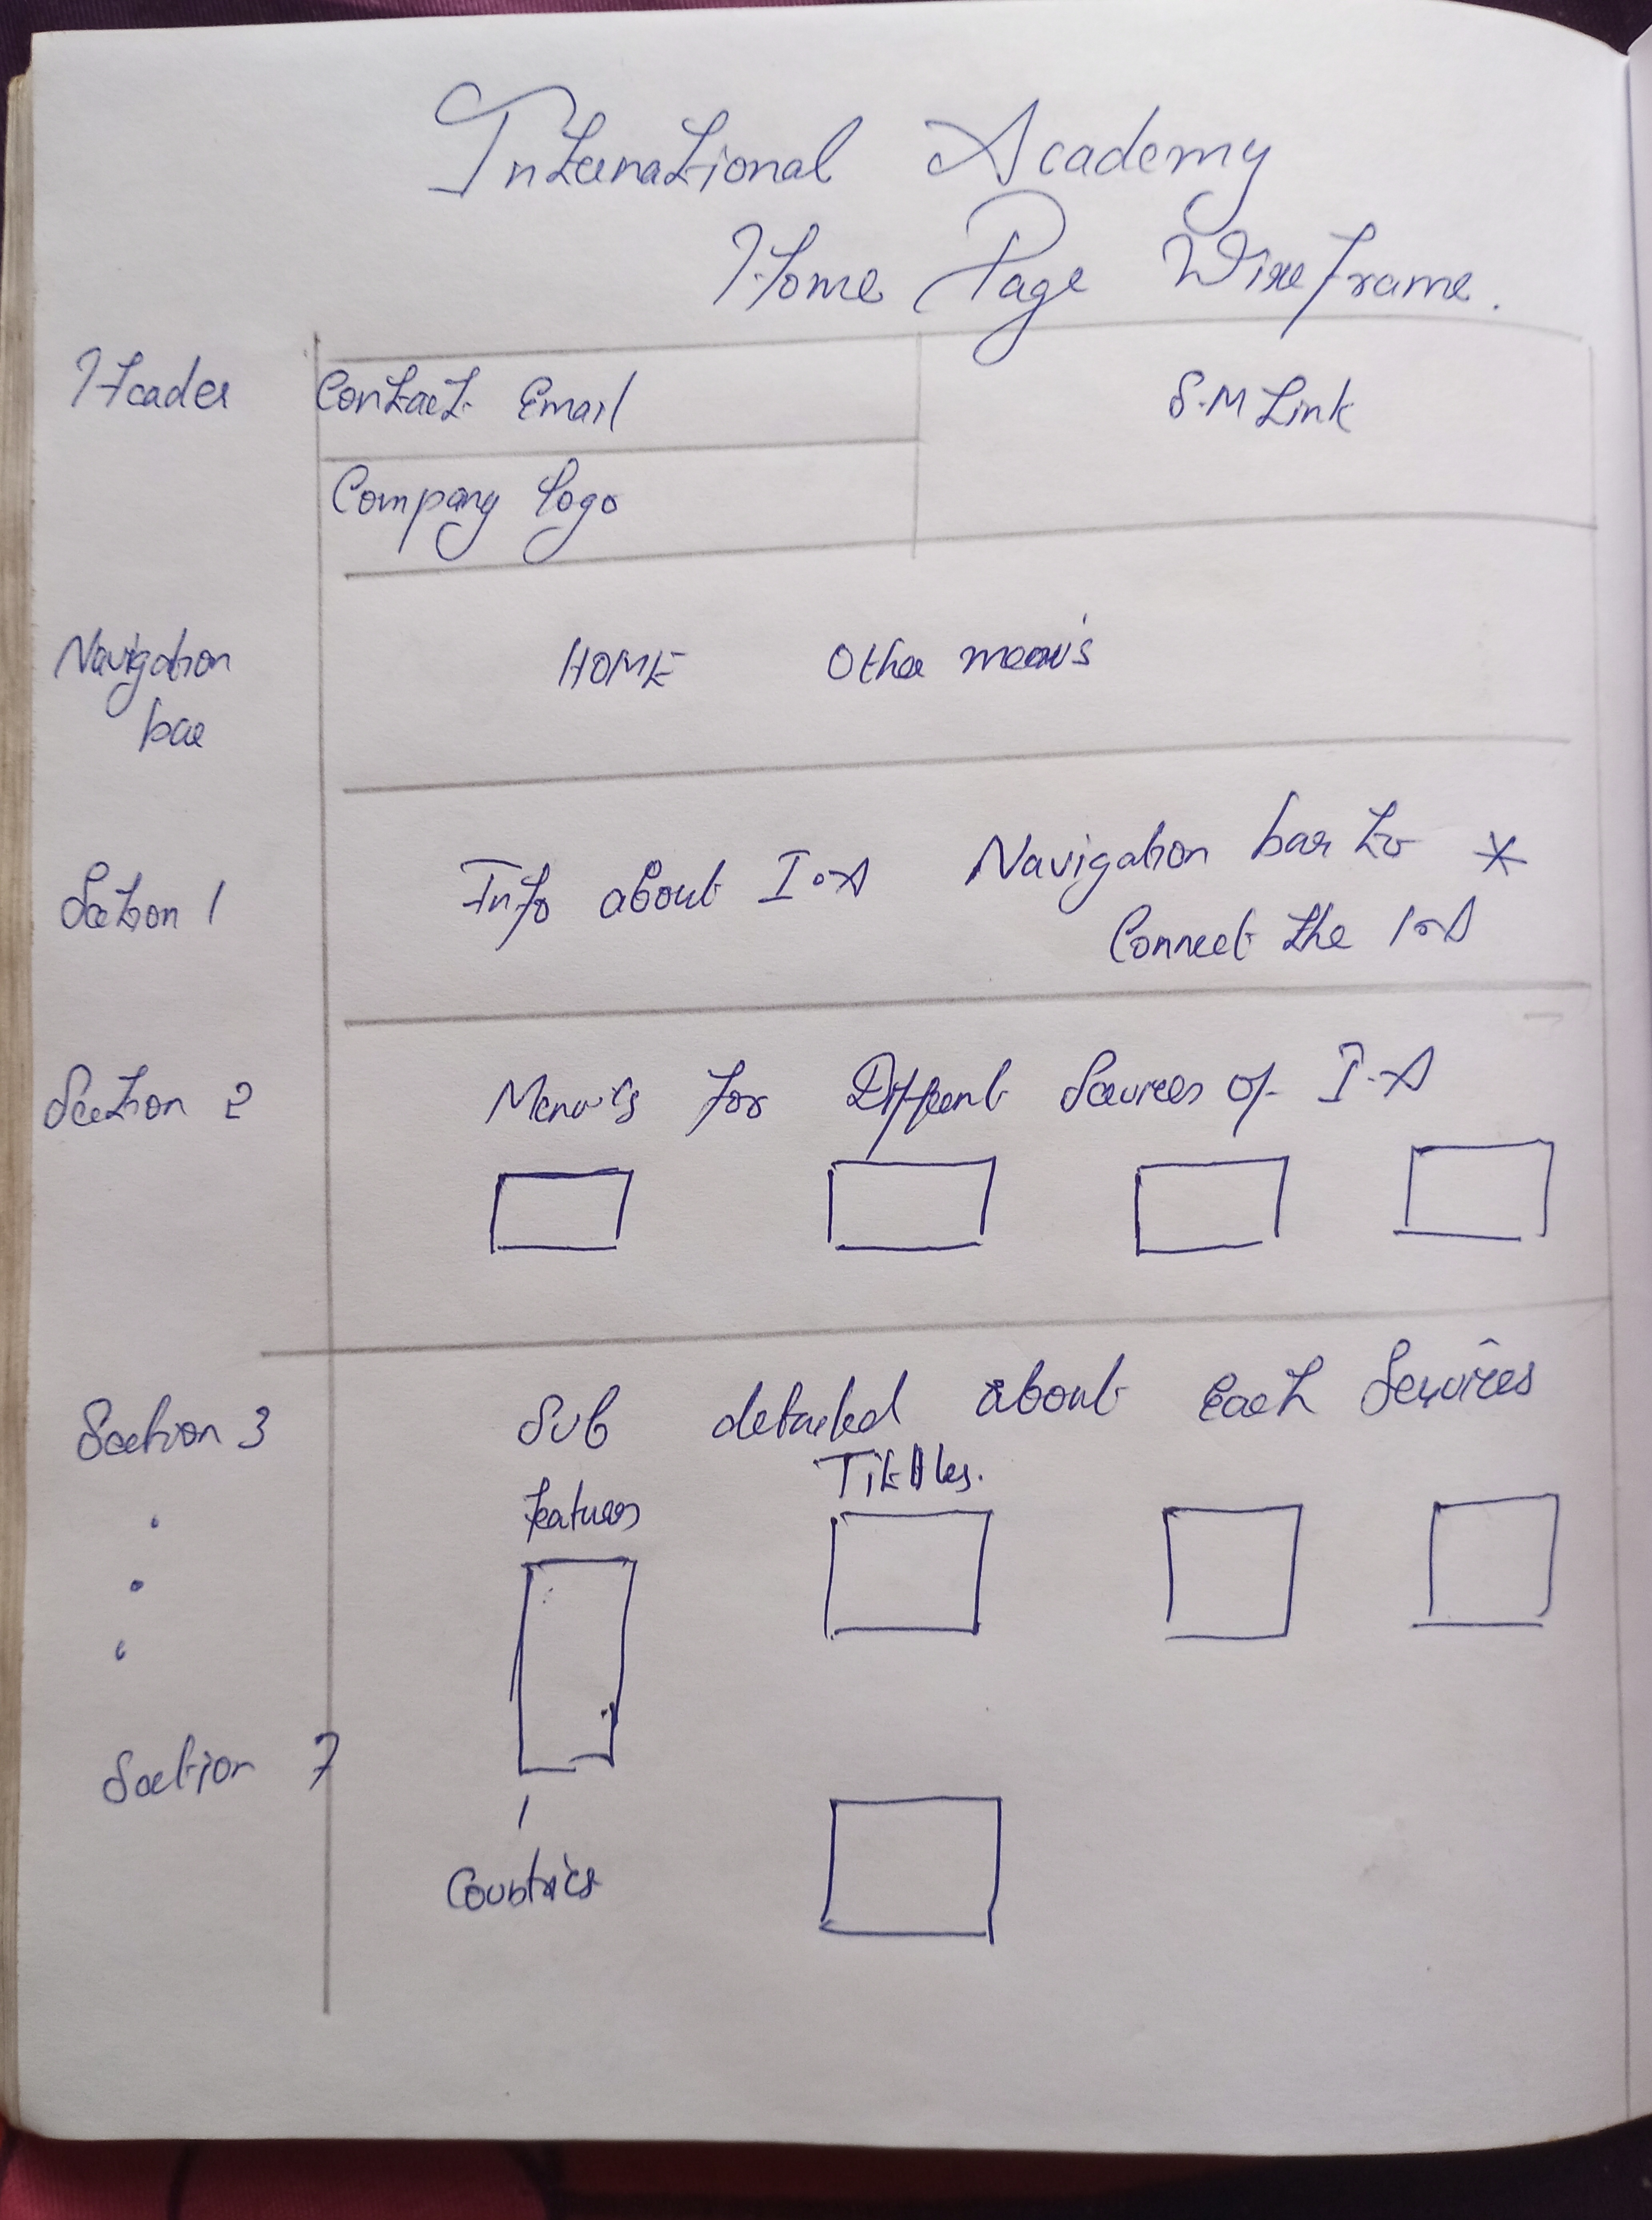 International Academy
Home Page Wireframe.
Header Contact Email S.M Link
Company logo
Navigation bar HOME Other menu's
Section 1 Info about I.A Navigation bar to *
Connect the I.A
Section 2 Menu's for Different Services of I.A
Section 3 Sub detailed about Each Services
features Tittles.
Section 7
Countries